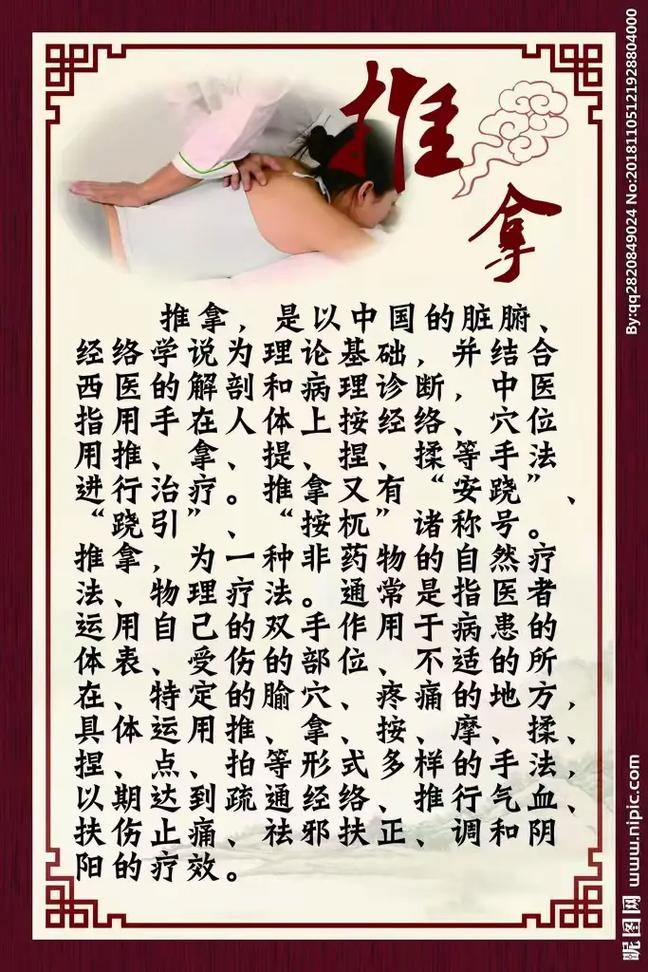 推拿
推拿，是以中国的脏腑、
经络学说为理论基础，并结合
西医的解剖和病理诊断，中医
指用手在人体上按经络、穴位
用推、拿、提、捏、揉等手法
进行治疗。推拿又有“安跷”、
“跷引”、“按杌”诸称号。
推拿，为一种非药物的自然疗
法、物理疗法。通常是指医者
运用自己的双手作用于病患的
体表、受伤的部位、不适的所
在、特定的腧穴、疼痛的地方，
具体运用推、拿、按、摩、揉、
捏、点、拍等形式多样的手法，
以期达到疏通经络、推行气血、
扶伤止痛、祛邪扶正、调和阴
阳的疗效。
By:qq2820849024 No:20181105121928804000
昵图网 www.nipic.com